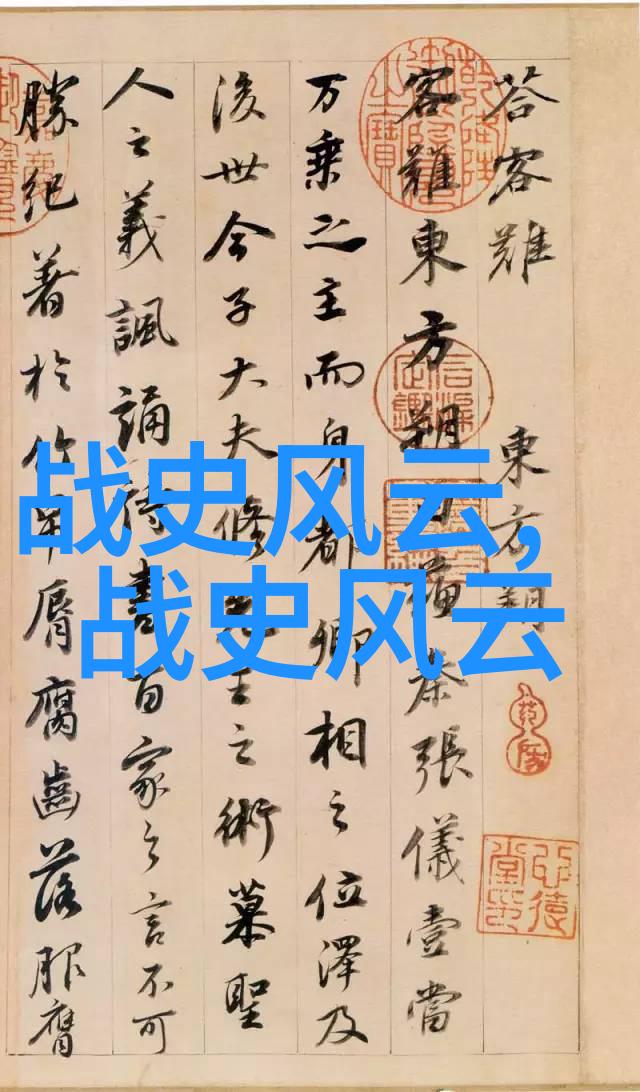 荅客難 東方朔
客難東方朔曰蘓秦張儀壹當
万乘之主而身都卿相之位澤及
後世今子大夫修先王之術慕聖
人之義諷誦詩書百家之言不可
勝紀著於竹帛脣腐齒落服膺
战史风云,
战史风云